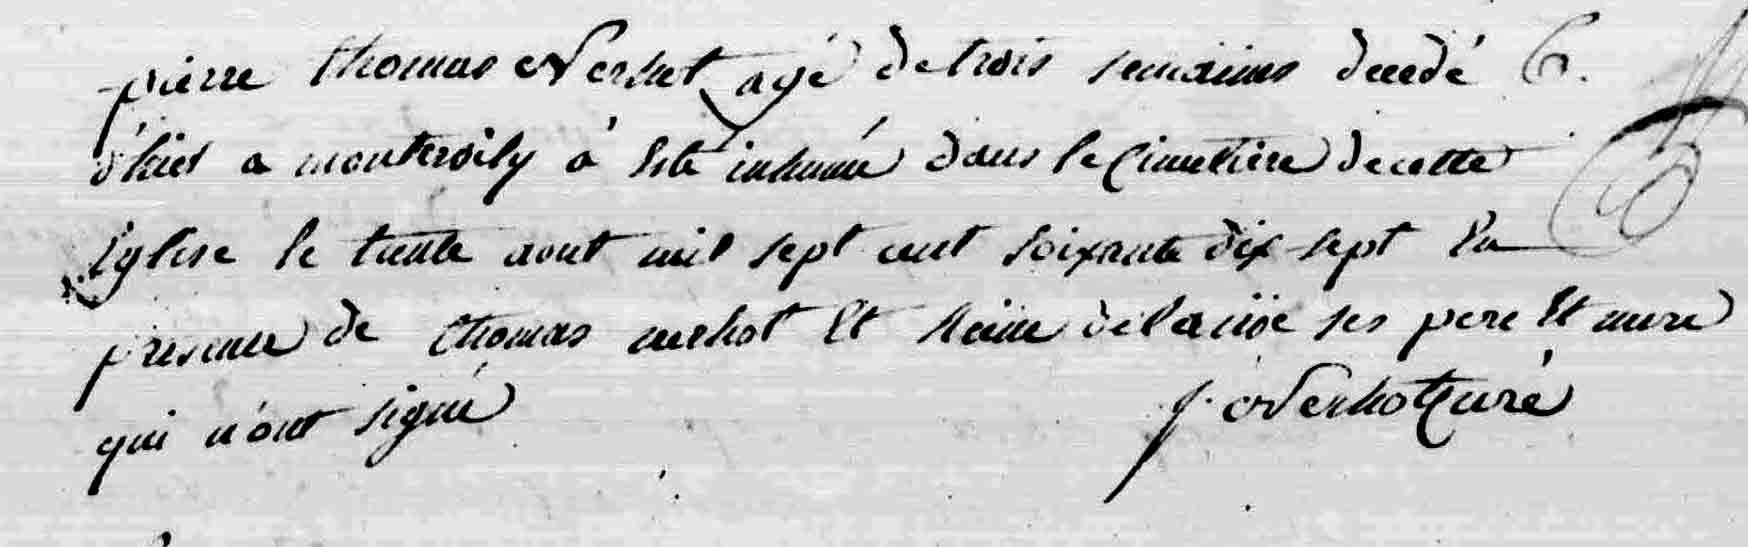 pierre thomas Nerhot agé de trois semaines decedé
d'hier a montroily à eté inhumé dans le Cimetiere de cette
Eglise le trente aout mil sept cent soixante dix sept En
presence de thomas nerhot Et ses pere Et mere
qui n'ont signé J. Nerhot curé